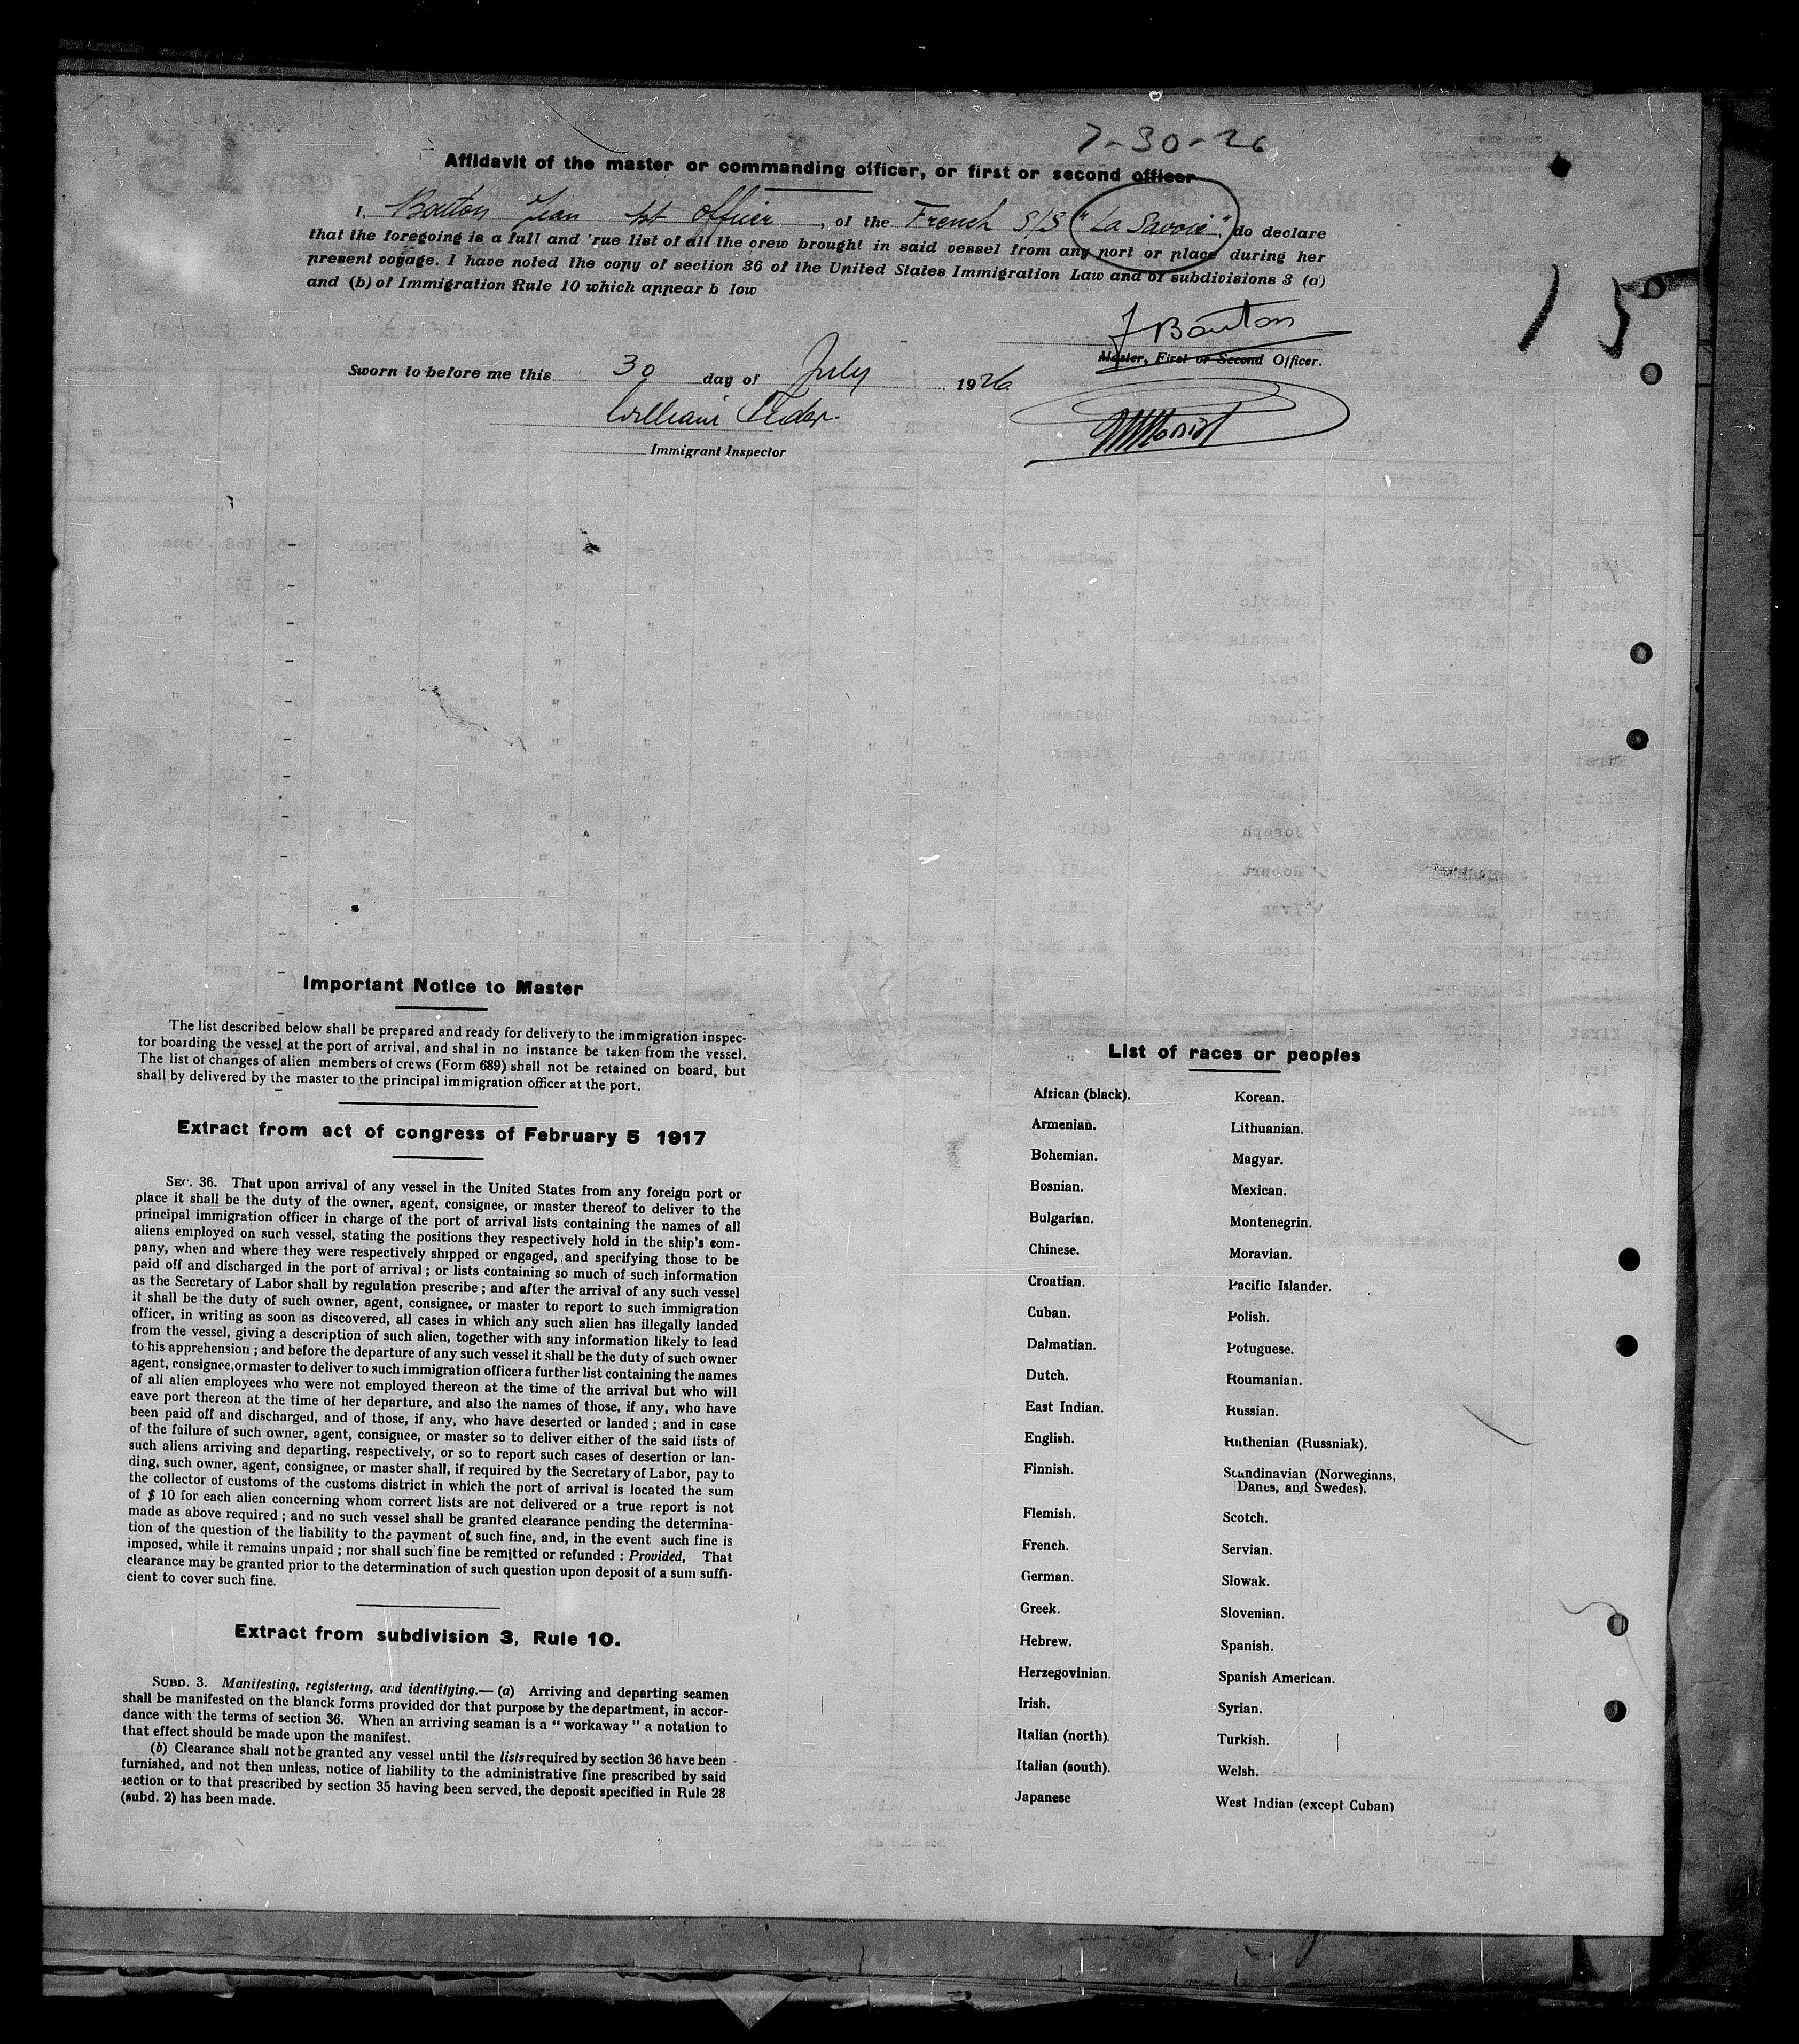 7-30-26
Affidavit of the master or commanding officer, or first or second officer
I, Bouton Jean 1st Officer, of the French S/S "La Savoie", do declare
that the foregoing is a full and rue list of all the crew brought in said vessel from any port or place during her
present voyage. I have noted the copy of section 36 of the United States Immigration Law and of subdivisions 3 (a)
and (b) of Immigration Rule 10 which appear b low
15
J Bouton
Master, First or Second Officer.
Sworn to before me this 30 day of July 1926
William
Immigrant Inspector
Important Notice to Master
The list described below shall be prepared and ready for delivery to the immigration inspec-
tor boarding the vessel at the port of arrival, and shal in no instance be taken from the vessel.
The list of changes of alien members of crews (Form 689) shall not be retained on board, but
shall by delivered by the master to the principal immigration officer at the port.
Extract from act of congress of February 5 1917
SEC. 36. That upon arrival of any vessel in the United States from any foreign port or
place it shall be the duty of the owner, agent, consignee, or master thereof to deliver to the
principal immigration officer in charge of the port of arrival lists containing the names of all
aliens employed on such vessel, stating the positions they respectively hold in the ship's com-
pany, when and where they were respectively shipped or engaged, and specifying those to be
paid off and discharged in the port of arrival ; or lists containing so much of such information
as the Secretary of Labor shall by regulation prescribe ; and after the arrival of any such vessel
it shall be the duty of such owner, agent, consignee, or master to report to such immigration
officer, in writing as soon as discovered, all cases in which any such alien has illegally landed
from the vessel, giving a description of such alien, together with any information likely to lead
to his apprehension ; and before the departure of any such vessel it shall be the duty of such owner
agent, consignee,ormaster to deliver to such immigration officer a further list containing the names
of all alien employees who were not employed thereon at the time of the arrival but who will
eave port thereon at the time of her departure, and also the names of those, if any, who have
been paid off and discharged, and of those, if any, who have deserted or landed ; and in case
of the failure of such owner, agent, consignee, or master so to deliver either of the said lists of
such aliens arriving and departing, respectively, or so to report such cases of desertion or lan-
ding, such owner, agent, consignee, or master shall, if required by the Secretary of Labor, pay to
the collector of customs of the customs district in which the port of arrival is located the sum
of $ 10 for each alien concerning whom correct lists are not delivered or a true report is not
made as above required ; and no such vessel shall be granted clearance pending the determina-
tion of the question of the liability to the payment of such fine, and, in the event such fine is
imposed, while it remains unpaid ; nor shall such fine be remitted or refunded : Provided, That
clearance may be granted prior to the determination of such question upon deposit of a sum suffi-
cient to cover such fine.
Extract from subdivision 3, Rule 10.
SUBD. 3. Manifesting, registering, and identifying.— (a) Arriving and departing seamen
shall be manifested on the blanck forms provided dor that purpose by the department, in accor-
dance with the terms of section 36. When an arriving seaman is a " workaway " a notation to
that effect should be made upon the manifest.
(b) Clearance shall not be granted any vessel until the lists required by section 36 have been
furnished, and not then unless, notice of liability to the administrative fine prescribed by said
section or to that prescribed by section 35 having been served, the deposit specified in Rule 28
(subd. 2) has been made.
List of races or peoples
African (black).
Armenian.
Bohemian.
Bosnian.
Bulgarian.
Chinese.
Croatian.
Cuban.
Dalmatian.
Dutch.
East Indian.
English.
Finnish.
Flemish.
French.
German.
Greek.
Hebrew.
Herzegovinian.
Irish.
Italian (north).
Italian (south).
Japanese
Korean.
Lithuanian.
Magyar.
Mexican.
Montenegrin.
Moravian.
Pacific Islander.
Polish.
Potuguese.
Roumanian.
Russian.
Ruthenian (Russniak).
Scandinavian (Norwegians,
Danes, and Swedes).
Scotch.
Servian.
Slowak.
Slovenian.
Spanish.
Spanish American.
Syrian.
Turkish.
Welsh.
West Indian (except Cuban)